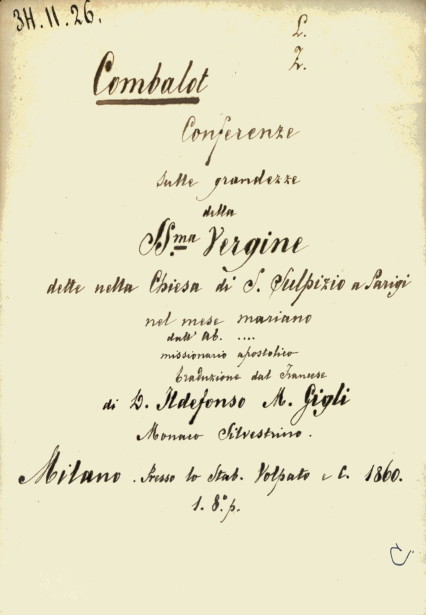 34.11.26.
L.
Z.
Combalot
Conferenze
sulle grandezze
della
SS.ma Vergine
dette nella Chiesa di S. Sulpizio a Parigi
nel mese mariano
dall' ab. ....
missionario apostolico
traduzione dal Francese
di D. Ildefonso M. Gigli
Monaco Silvestrino.
Milano. Presso lo Stab. Volpato e C. 1860.
1. 8.° p.